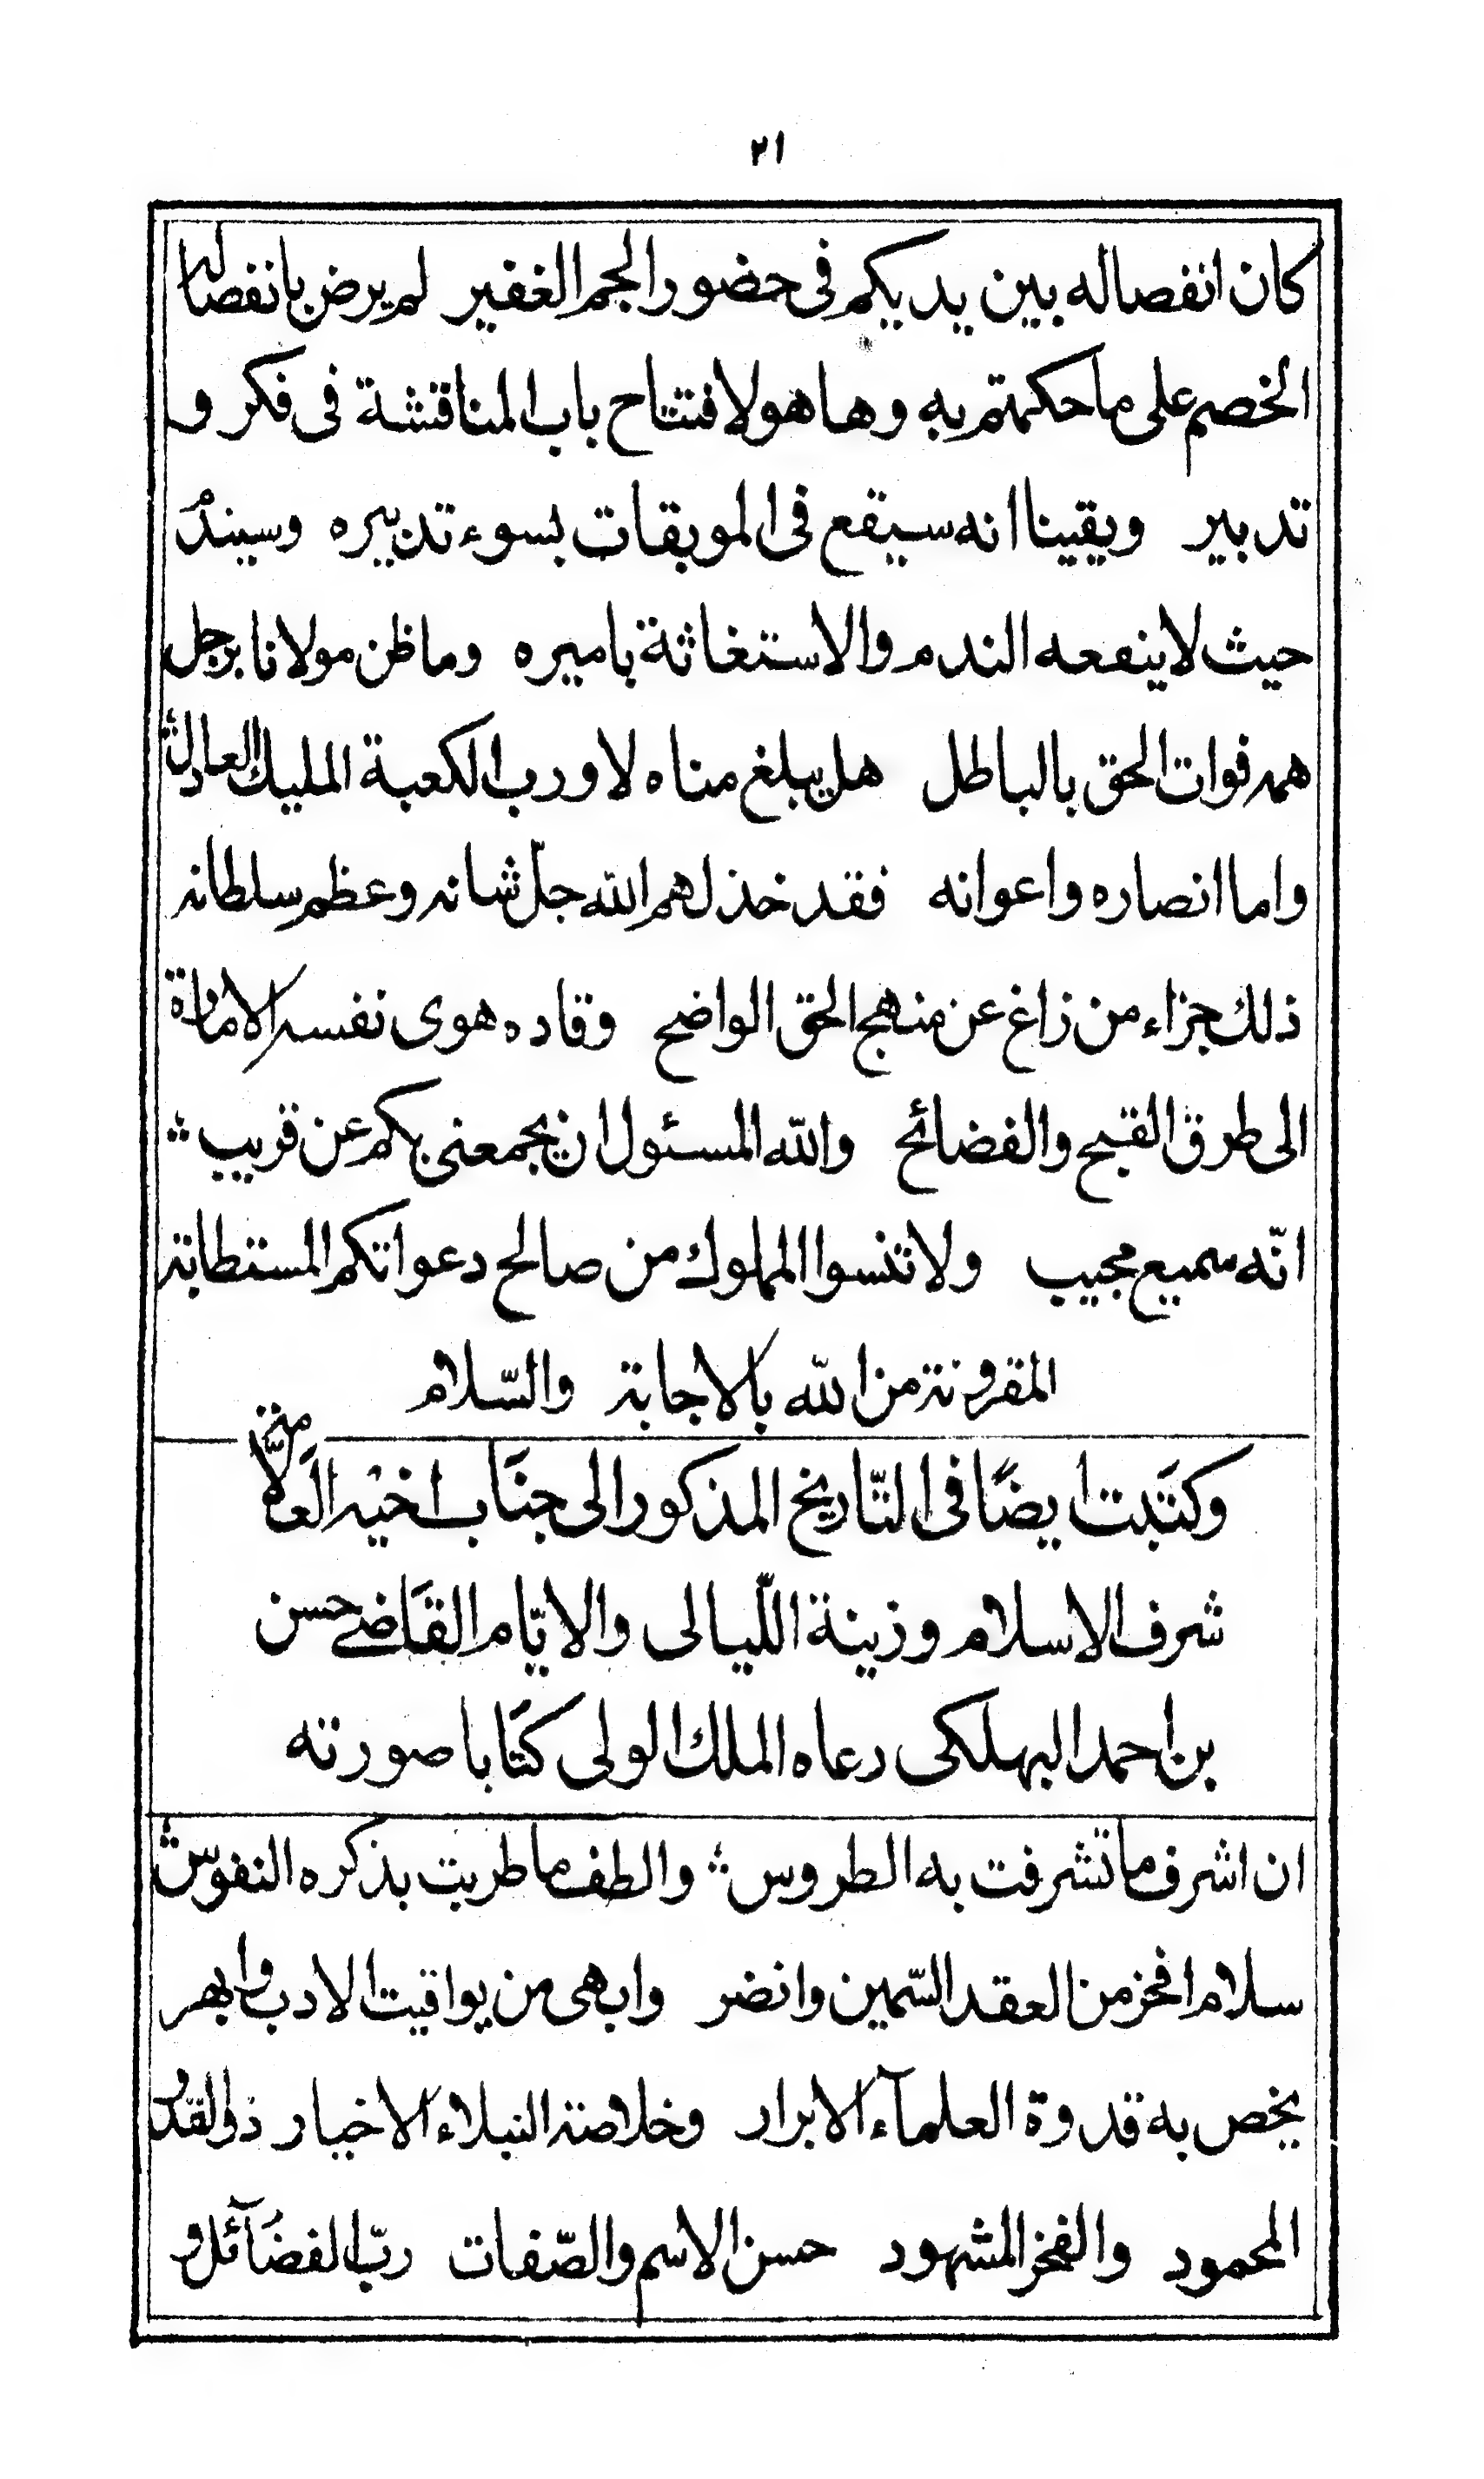 ٢١
كان انفصاله بين يديكم فى حضور الجم الغفير لم يرض بانفصاله
الخصم على ما حكمتم به وها هو لافتتاح باب المناقشة فى فكر و
تدبير ويقينا انه سيقع فى الموبقات بسوء تدبيره وسيندم
حيث لا ينفعه الندم والاستغاثة باميره وما ظن مولانا برجل
همه فوات الحق بالباطل هل يبلغ مناه لا ورب الكعبة المليك العادل
واما انصاره واعوانه فقد خذلهم الله جلّ شانه وعظم سلطانه
ذلك جزاء من زاغ عن منهج الحق الواضح وقاده هوى نفسه الامارة
الى طرق القبح والفضائح والله المسئول ان يجمعنى بكم عن قريب
انّه سميع مجيب ولا تنسوا المملوك من صالح دعواتكم المستطابة
المقرونة من الله بالاجابة والسّلام
وكتَبت ايضًا فى التّاريخ المذكور الى جنَاب اخيْه العَلّامة
شرف الاسلام وزينة اللّيالى والايّام القَاضے حسن
بن احمد البهلكى رعاه الملك الولى كتَابا صورته
ان اشرف ما تشرفت به الطروس والطف ما طربت بذكره النفوس
سلام افخر من العقد السّمين وانضر وابهى من يواقيت الادب وابهر
يخص به قدوة العلمآء الابرار وخلاصة النبلاء الاخيار ذو القدر
المحمود والفخر المشهود حسن الاسم والصّفات ربّ الفضَآئل و